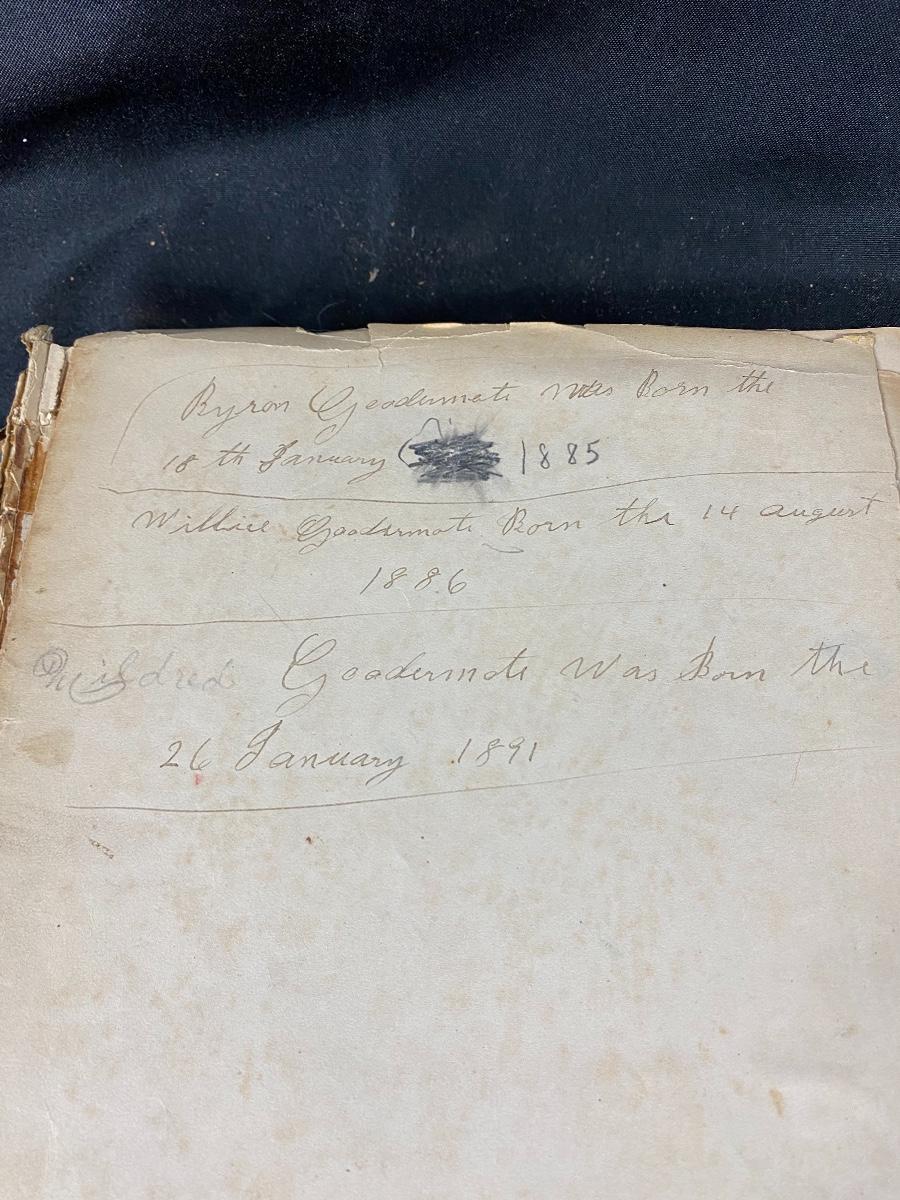 Byron Goodermote was Born the
18 th January 1885
Willie Goodermote Born the 14 august
1886
Mildred Goodermote Was Born the
26 January 1891